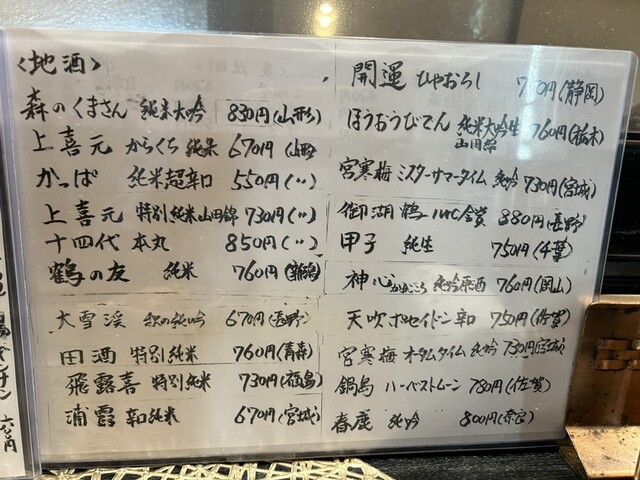 〈地酒〉
森のくまさん 純米大吟 830円(山形)
上喜元 からくち 純米 670円(山形)
かっぱ 純米超辛口 550円(〃)
上喜元 特別純米山田錦 730円(〃)
十四代 本丸 850円(〃)
鶴の友 純米 760円(新潟)
大雪渓 秋の純吟 670円(長野)
田酒 特別純米 760円(青森)
飛露喜 特別純米 730円(福島)
浦霞 辛口純米 670円(宮城)
開運 ひやおろし 750円(静岡)
ほうおうびでん 純米大吟生 760円(栃木)
山田錦
宮寒梅 ミスターサマータイム 純吟 730円(宮城)
御湖鶴 IWC金賞 880円(長野)
甲子 純生 750円(千葉)
神心 かみこころ 純吟原酒 760円(岡山)
天吹 ポセイドン 辛口 750円(佐賀)
宮寒梅 オータムタイム 純吟 730円(宮城)
鍋島 ハーベストムーン 780円(佐賀)
春鹿 純吟 800円(奈良)